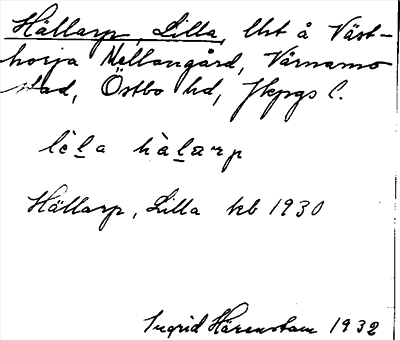 Hällarp, Lilla, lht å Väst-
horja Mellangård, Värnamo
stad, Östbo hd, Jkpgs l.
lɩ̀l̠a hàl̠arp
Hällarp, Lilla kb 1930
Ingrid Härenstam 1932